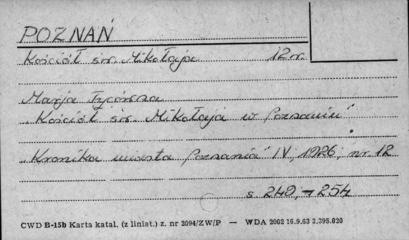 POZNAŃ
Kościół św. Mikołaja 12 w.
Marja
"Kościół św. Mikołaja w Poznaniu"
"Kronika miasta Poznania" IV, 1926, nr. 12
s 249, - 254
CWD B-15b Karta katal. (z liniat.) z. nr 2094/ZW/P — WDA 2002 16.9.63 2.395.020